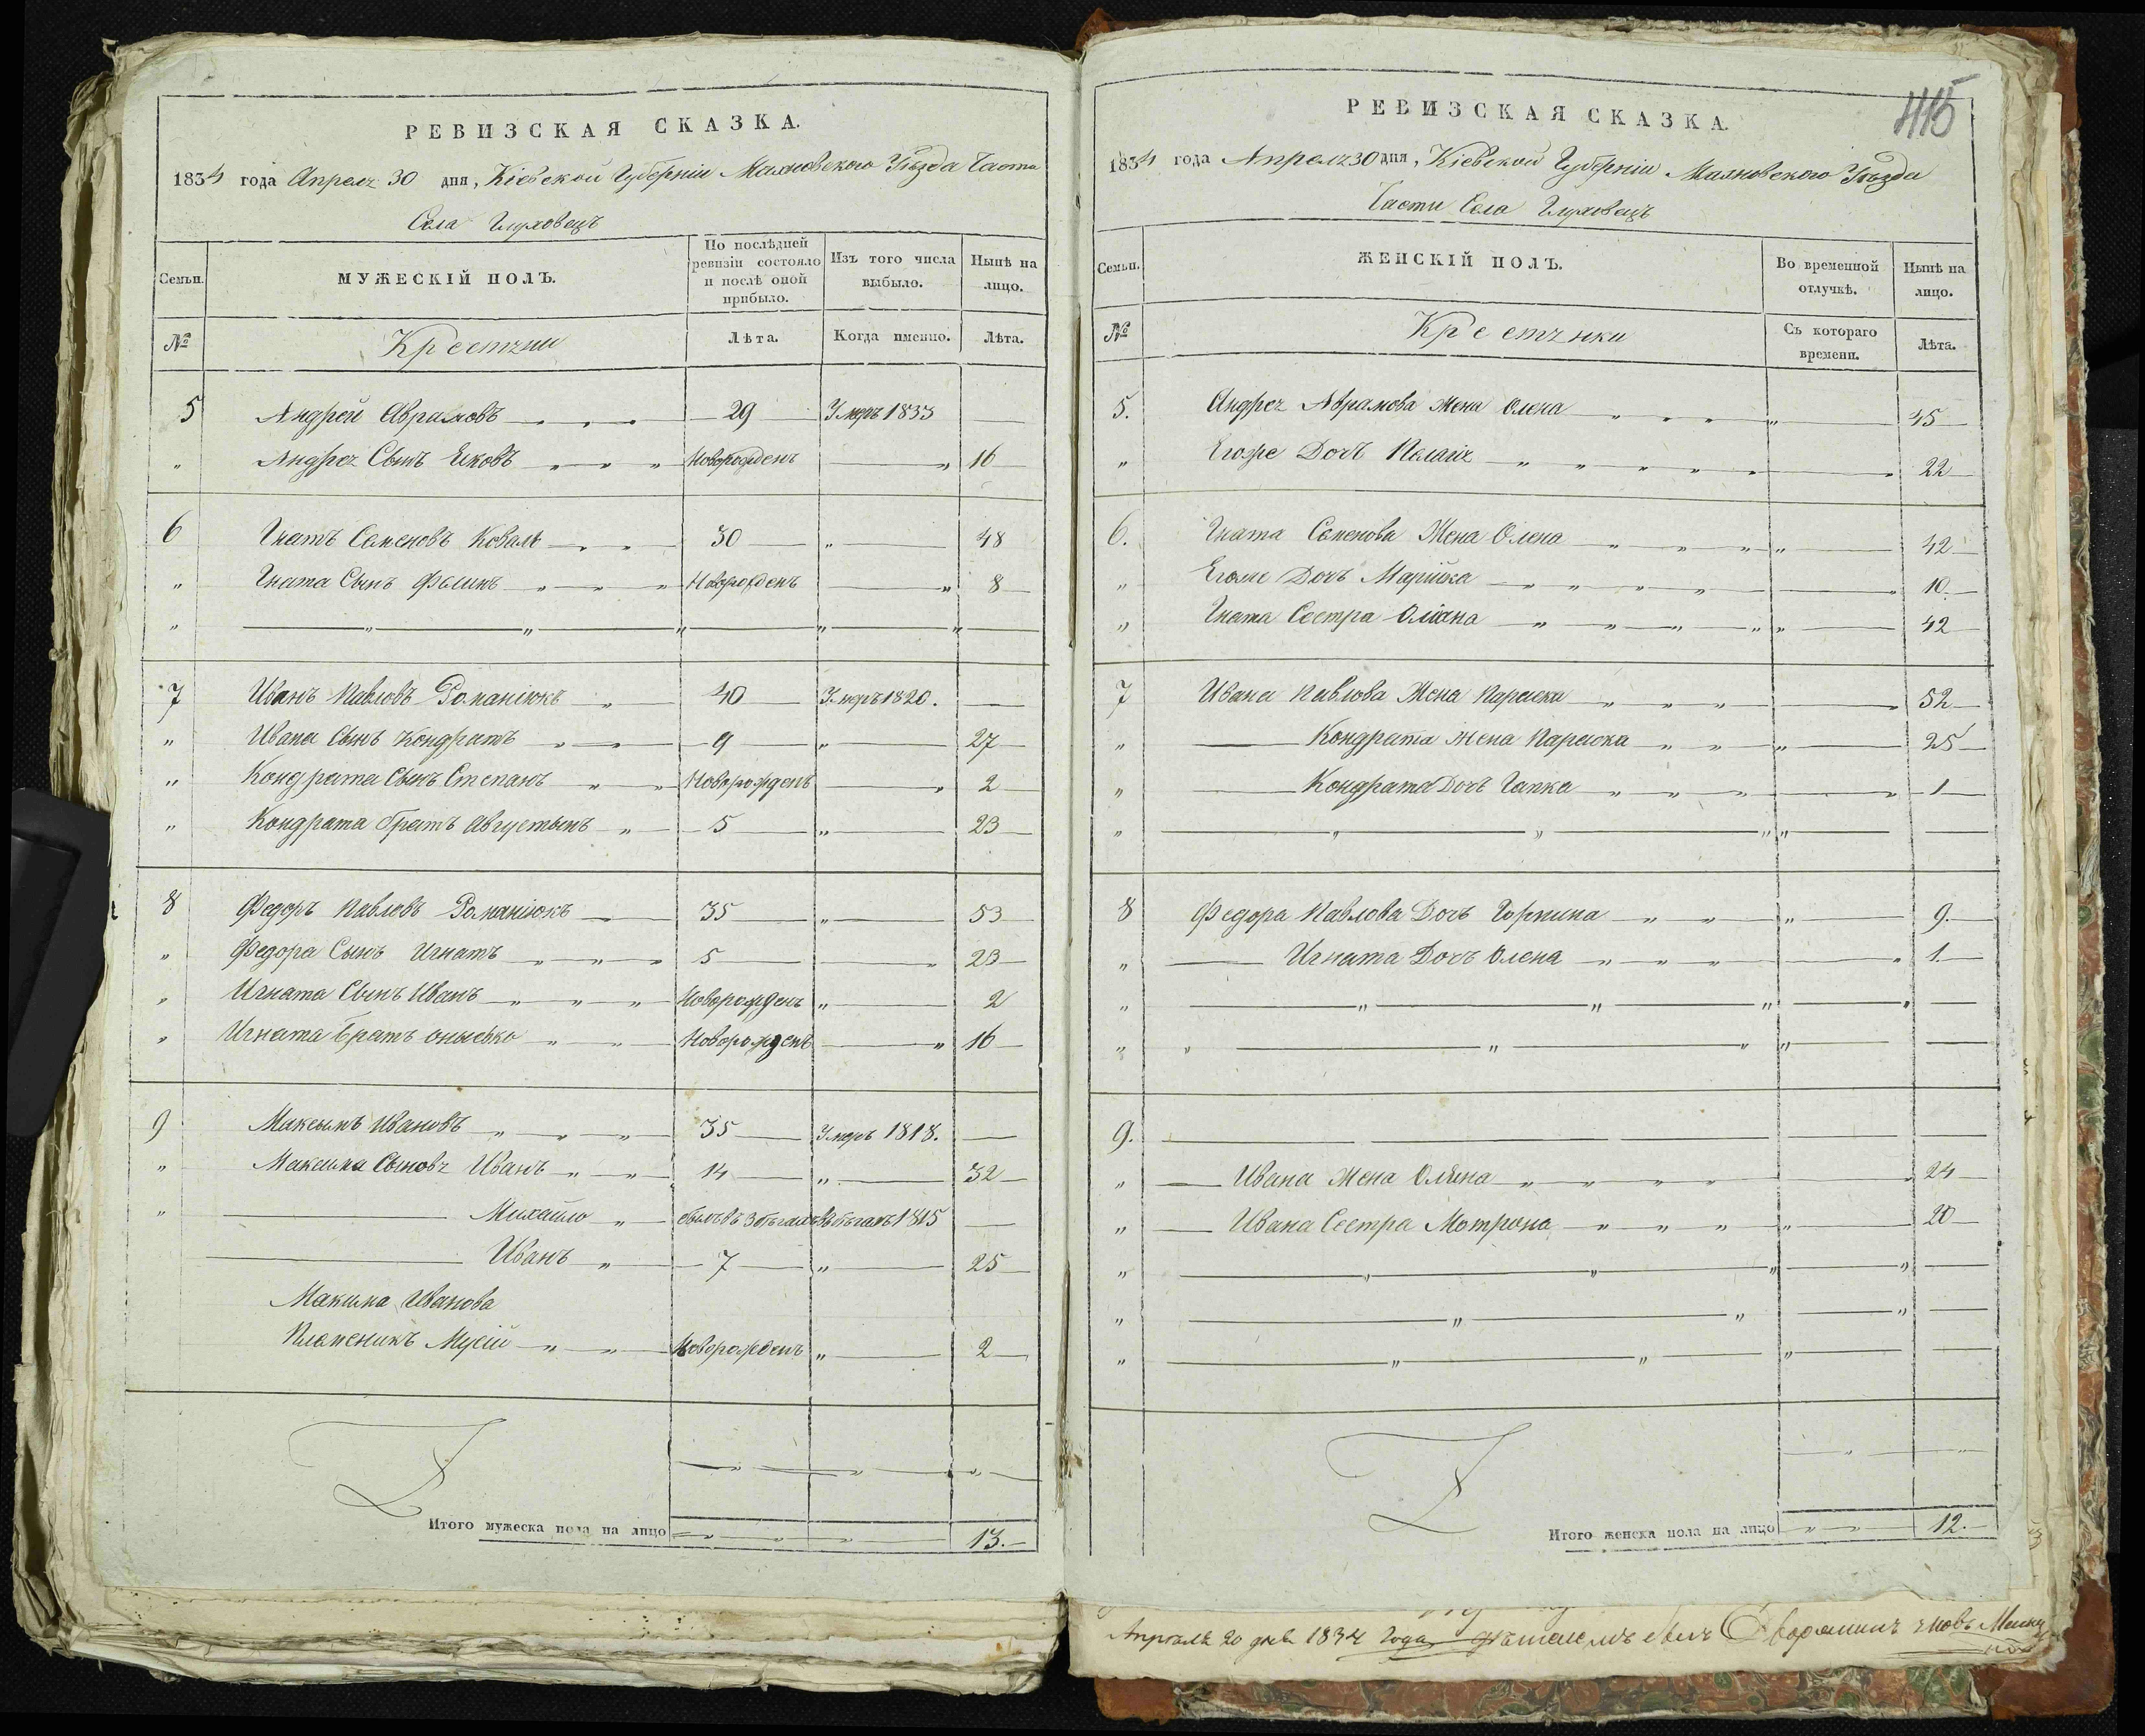 РЕВИЗСКАЯ СКАЗКА.
1834 года Апреля 30 дня, Кіевской Губерніи Махновского Уѣзда Части
Села Глуховецъ
Семьи.
МУЖЕСКІЙ ПОЛЪ.
По послѣдней ревизіи состояло и послѣ оной прибыло.
Изъ того числа выбыло.
Нынѣ на лицо.
№
Крестяни
Лѣта.
Когда именно.
Лѣта.
5 Андрей Аврамовъ 29 Умеръ 1833
" Андрея Сынъ Яковъ Новорожденъ " 16
6 Гнатъ Семеновъ Коваль 30 " 48
" Гната Сынъ Новорожденъ " 8
"
7 Иванъ Павловъ Романіюкъ 40 Умеръ 1820.
" Ивана Сынъ Кондратъ 9 " 27
" Кондрата Сынъ Степанъ Новорожденъ " 2
" Кондрата братъ Августынъ 5 " 23
8 Федоръ Павловъ Романіюкъ 35 " 53
" Федора Сынъ Игнатъ 5 " 23
" Игната Сынъ Иванъ Новорожденъ " 2
" Игната братъ Онысько Новорожденъ " 16
9 Максымъ Ивановъ 35 Умеръ 1818.
" Максима Сыновя Иванъ 14 " 32
" Михайло 1815
Иванъ 7 " 25
Максима Иванова
Племеникъ Мусій Новорожденъ " 2
Итого мужеска пола на лицо 13.
415
РЕВИЗСКАЯ СКАЗКА.
1834 года Апреля 30 дня, Кіевской Губерніи Махновского Уѣзда
Части Села Глуховецъ
Семьи.
ЖЕНСКІЙ ПОЛЪ.
Во временной отлучкѣ.
Нынѣ на лицо.
№
Крестянки
Съ котораго времени.
Лѣта.
5. Андрея Аврамова Жена Олена " 45
" Егоже Дочъ Палагія " 22
6. Гната Семенова Жена Олена " 42
" Егоже Дочъ Марійка " 10.
" Гната Сестра Оліана " 42
7 Ивана Павлова Жена Параска " 52
" Кондрата жена Параска " 25
" Кондрата Дочъ Гапка " 1
"
8 Федора Павлова Дочъ Горпина " 9.
" Игната Дочъ Олена " 1.
"
"
9.
" Ивана жена Оляна " 24
" Ивана Сестра Мотрона " 20
"
"
"
Итого женска пола на лицо 12.
Апреля 20 дня 1834 года